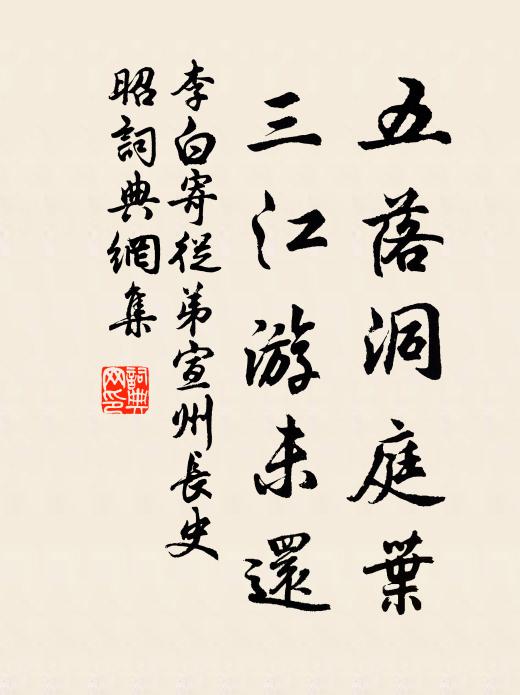 五落洞庭葉
三江游未還
李白寄從弟宣州長史
昭詞典網集
詞典
网印